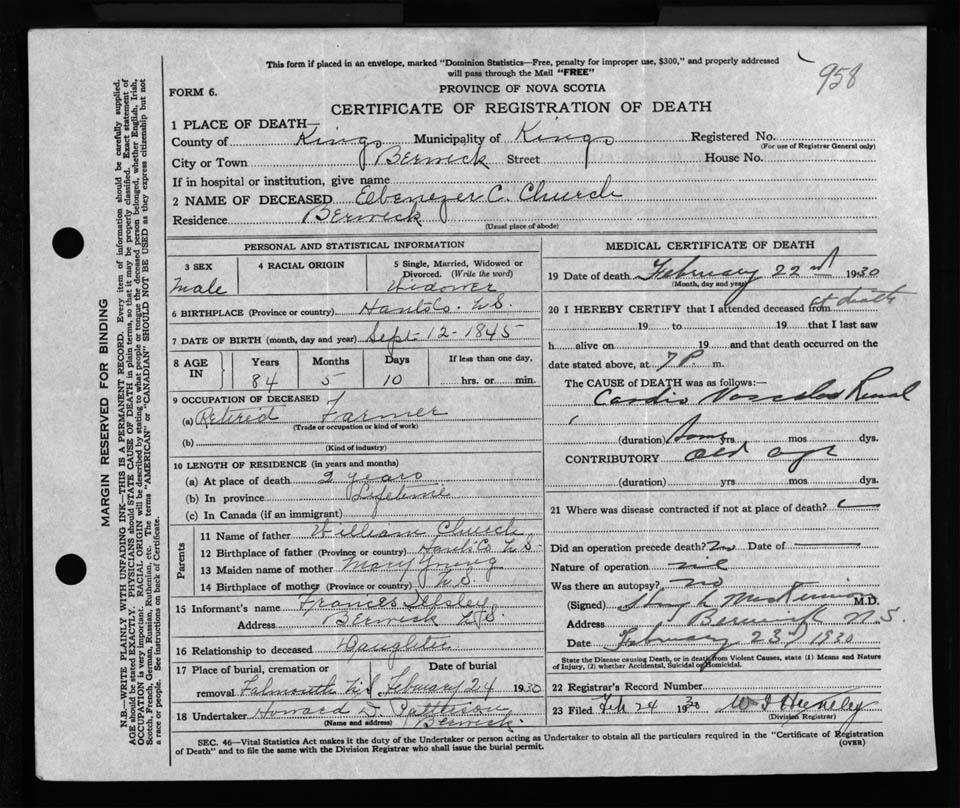 This form if placed in an envelope, marked "Dominion Statistics—Free, penalty for improper use, $300," and properly addressed
will pass through the Mail "FREE"
958
FORM 6.
PROVINCE OF NOVA SCOTIA
CERTIFICATE OF REGISTRATION OF DEATH
1 PLACE OF DEATH—
County of Kings Municipality of Kings Registered No.
(For use of Registrar General only)
City or Town Berwick Street House No.
If in hospital or institution, give name
2 NAME OF DECEASED Ebenezer C. Church
Residence Berwick
(Usual place of abode)
PERSONAL AND STATISTICAL INFORMATION
3 SEX
Male
4 RACIAL ORIGIN
5 Single, Married, Widowed or
Divorced. (Write the word)
Widower
6 BIRTHPLACE (Province or country) Hants Co. N.S.
7 DATE OF BIRTH (month, day and year) Sept-12-1845
8 AGE IN
Years Months Days If less than one day,
84 5 10 hrs. or min.
9 OCCUPATION OF DECEASED
(a) Retired Farmer
(Trade or occupation or kind of work)
(b)
(Kind of industry)
10 LENGTH OF RESIDENCE (in years and months)
(a) At place of death 2 years
(b) In province Lifetime
(c) In Canada (if an immigrant)
Parents
11 Name of father William Church
12 Birthplace of father (Province or country) Hants Co N.S.
13 Maiden name of mother Mary Young
14 Birthplace of mother (Province or country) N.S.
15 Informant's name Frances
Address Berwick N.S.
16 Relationship to deceased Daughter
17 Place of burial, cremation or Date of burial
removal Falmouth N.S. February 24 1930
18 Undertaker Howard
(Name and address) Berwick
MEDICAL CERTIFICATE OF DEATH
19 Date of death February 22nd 1930
(Month, day and year)
20 I HEREBY CERTIFY that I attended deceased from at death
19 to 19 that I last saw
h alive on 19 and that death occurred on the
date stated above, at 7 P. m.
The CAUSE of DEATH was as follows:—
Cardio Vascular Renal
(duration) Some yrs mos dys.
CONTRIBUTORY old age
(duration) yrs mos dys.
21 Where was disease contracted if not at place of death?
Did an operation precede death? no Date of
Nature of operation nil
Was there an autopsy? no
(Signed) M.D.
Address Berwick N.S.
Date February 23rd 1930
State the Disease causing Death, or in death from Violent Causes, state (1) Means and Nature
of Injury, (2) whether Accidental, Suicidal or Homicidal.
22 Registrar's Record Number
23 Filed Feb 24 1930
(Division Registrar)
SEC. 46—Vital Statistics Act makes it the duty of the Undertaker or person acting as Undertaker to obtain all the particulars required in the "Certificate of Registration
of Death" and to file the same with the Division Registrar who shall issue the burial permit.
(OVER)
MARGIN RESERVED FOR BINDING
N.B.—WRITE PLAINLY WITH UNFADING INK—THIS IS A PERMANENT RECORD. Every item of information should be carefully supplied.
AGE should be stated EXACTLY. PHYSICIANS should STATE CAUSE OF DEATH in plain terms, so that it may be properly classified. Exact statement of
OCCUPATION is very important. RACIAL ORIGIN will be described by stating to what people or tongue the deceased person belonged, whether English, Irish,
Scotch, French, German, Russian, Ruthenian, etc. The terms "AMERICAN" or "CANADIAN" SHOULD NOT BE USED as they express citizenship but not
a race or people. See instructions on back of Certificate.